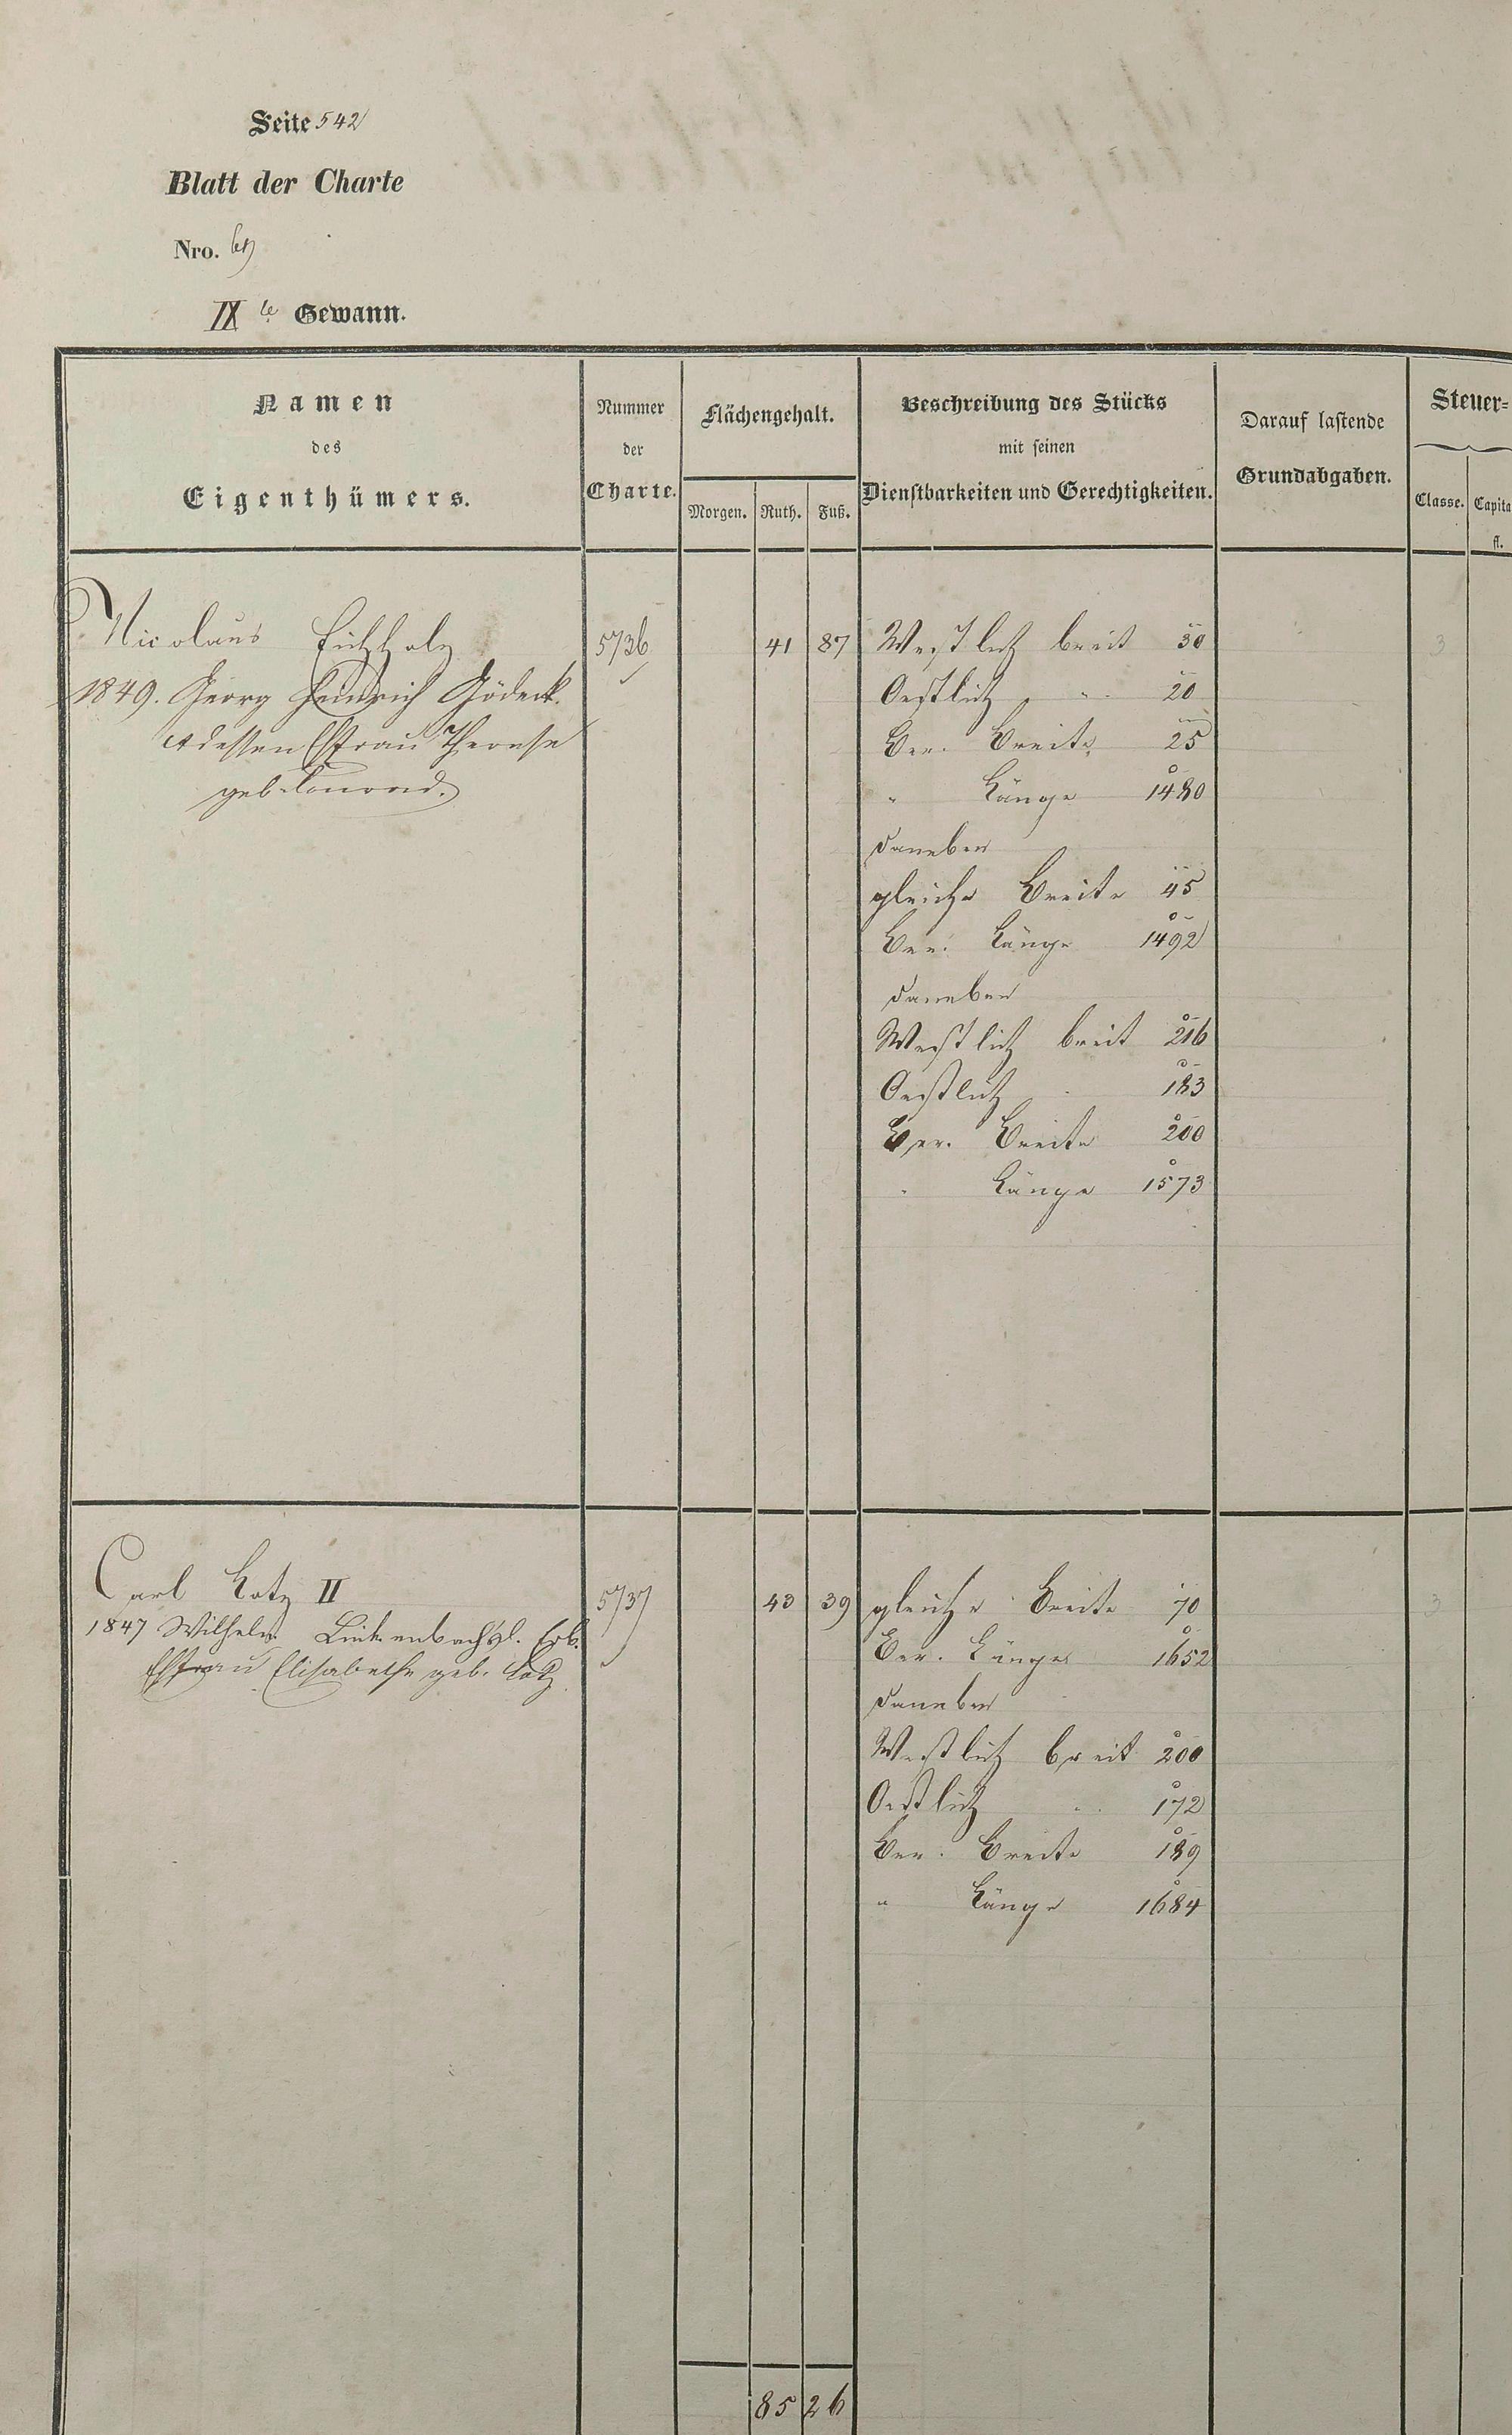 Seite 542
Blatt der Charte
Nro. 67
IX te Gewann.
Namen des Eigenthümers.
Nummer der Charte.
Flächengehalt.
Morgen. Ruth. Fuß.
Beschreibung des Stücks mit seinen Dienstbarkeiten und Gerechtigkeiten.
Darauf lastende Grundabgaben.
Steuer=
Classe. Capita
fl.
Nicolaus Eichholz 5736 41 87 Westlich breit 30 3
1849. Georg Heinrich Gödeck. Oestlich " 20
& dessen Ehfrau Therese Ber. Breite 25
geb. " Länge 1480
daneben
gleiche Breite 45
Ber. Länge 1492
daneben
Westlich breit 216
Oestlich " 183
Ber. Breite 200
" Länge 1573
Carl Lotz II 5737 43 39 gleiche Breite 70 3
1847 Wilhelm Linkenbach gl. Erb. Ber. Länge 1652
Ehfrau Elisabethe geb. Lotz daneben
Westlich breit 200
Oestlich " 172
Ber. Breite 189
" Länge 1684
85 26